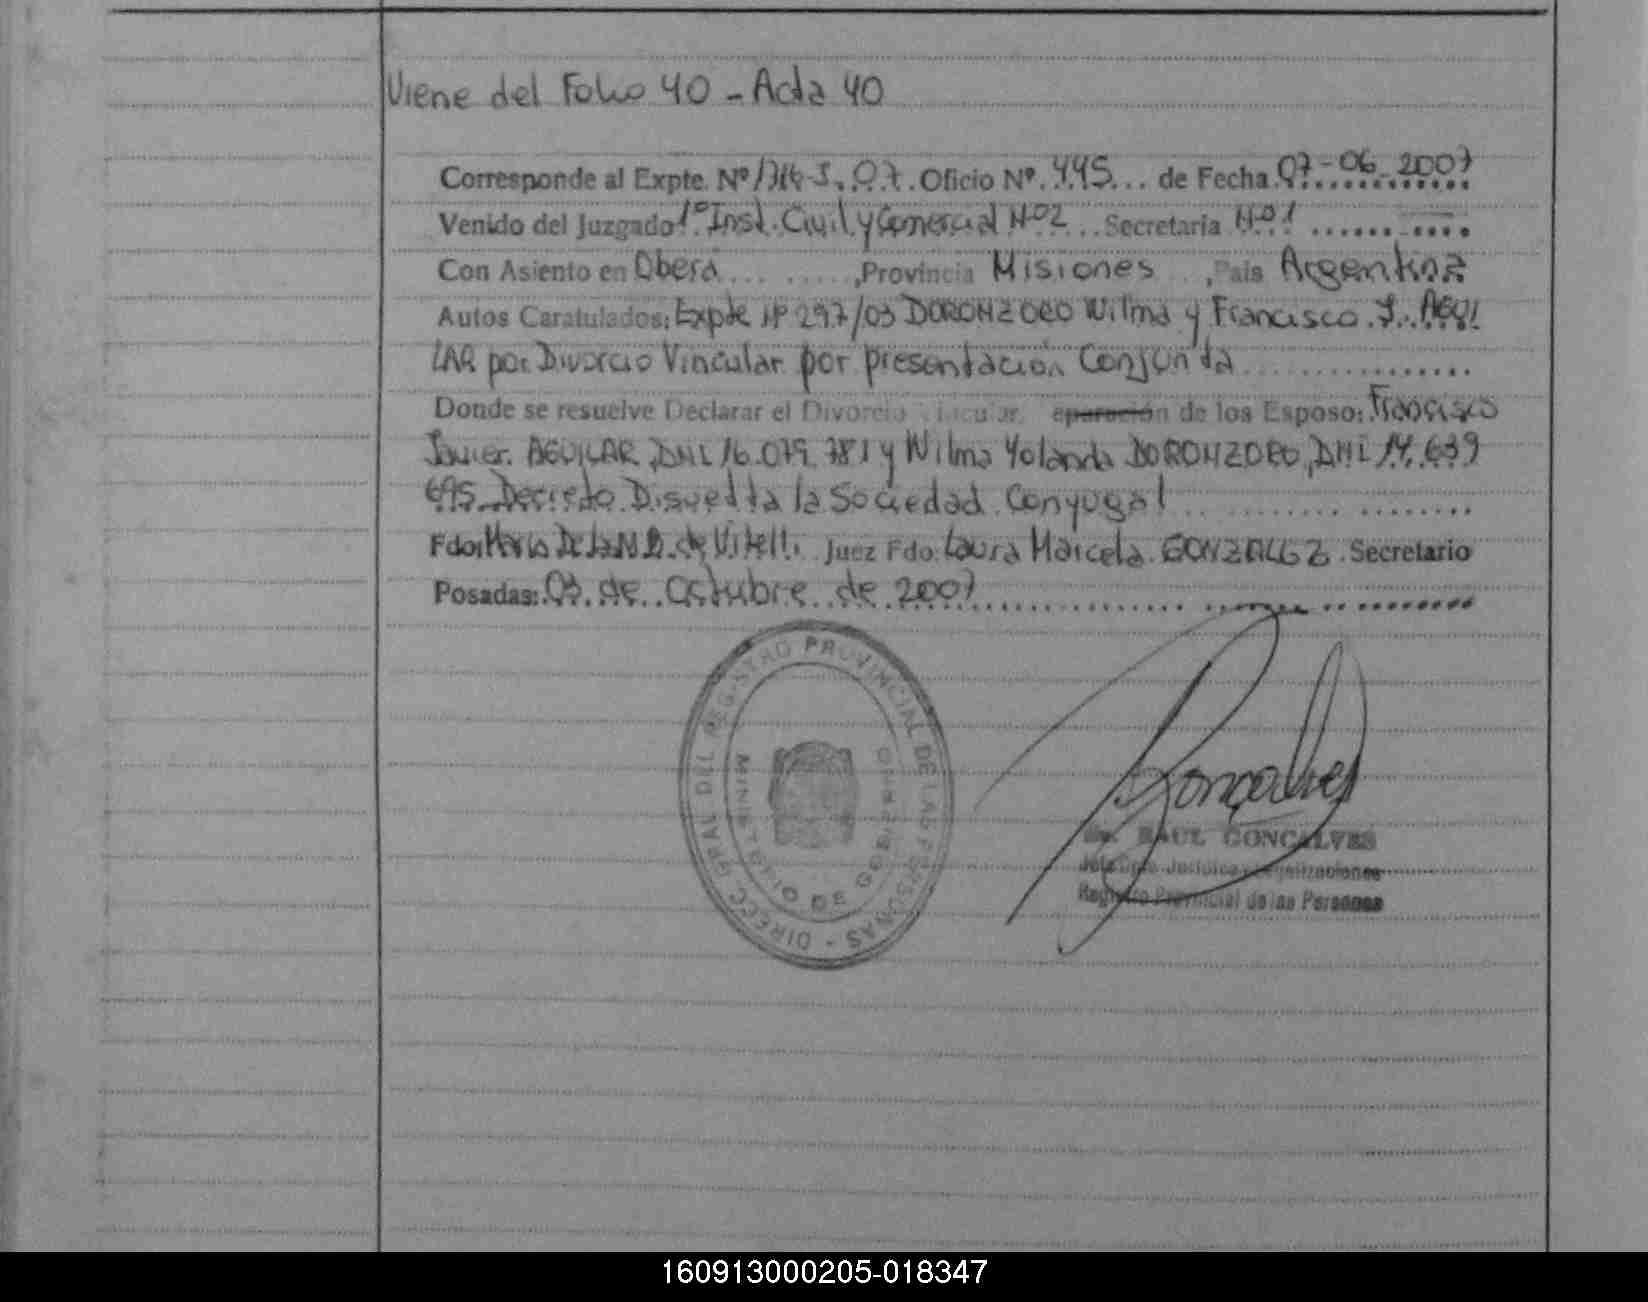 Viene del Folio 40 - Acta 40
Corresponde al Expte. Nº 1714-J..07. Oficio Nº. 445... de Fecha. 07-06-2007
Venido del Juzgado 1º Inst. Civil y Comercial Nº 2... Secretaria Nº 1
Con Asiento en Oberá..........,Provincia Misiones ,Pais Argentina
Autos Caratulados: Expte Nº 297/03 DORONZORO Wilma y Francisco J. AGUI
LAR por Divorcio Vincular por presentación Conjunta
Donde se resuelve Declarar el Divorcio Vincular, eparación de los Esposo: Francisco
Javier. AGUILAR, DNI 16.079.781 y Wilma Yolanda DORONZORO, DNI 14.639
695. Decreto Disuelta la Sociedad Conyugal
Fdo: María De la M. D. de Vitelli Juez Fdo: Laura Marcela GONZALEZ. Secretario
Posadas: 03 de Octubre de 2007
DIRECC. GRAL. DEL REGISTRO PROVINCIAL DE LAS PERSONAS -
MINISTERIO DE GOBIERNO
Goncalves
RAUL GONCALVES
Jefe Dpto. Jurídico
Registro Provincial de las Personas
160913000205-018347